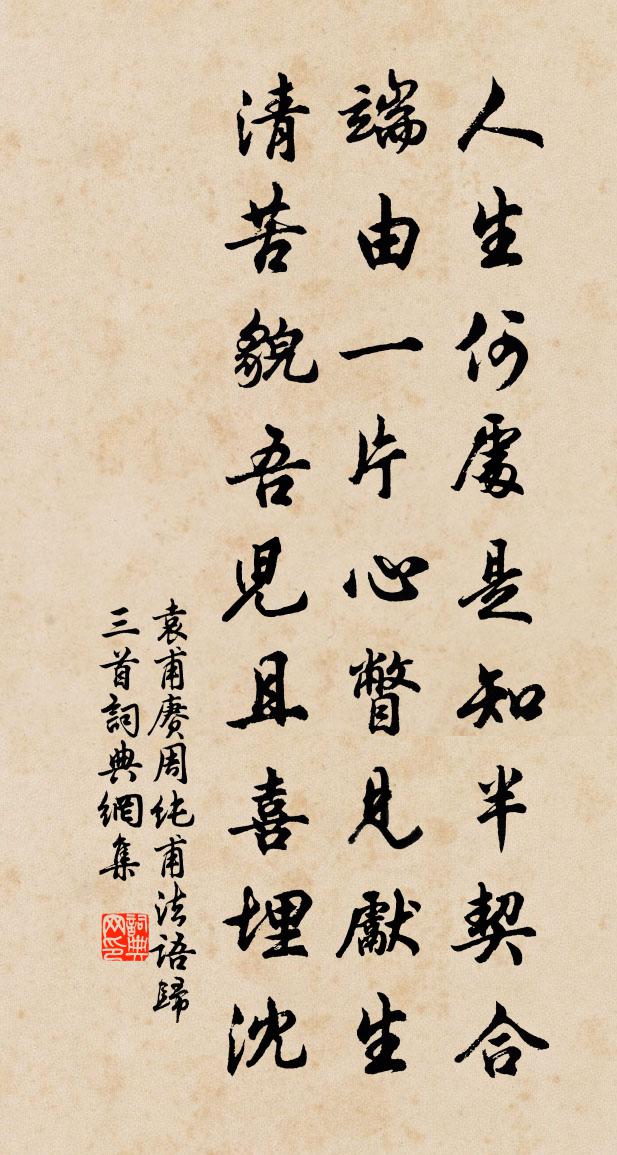 人生何處是知半契合
端由一片心瞥見獻生
清苦貌吾兒且喜埋沈
袁甫賡周純甫法語歸
三首詞典網集
詞典网印